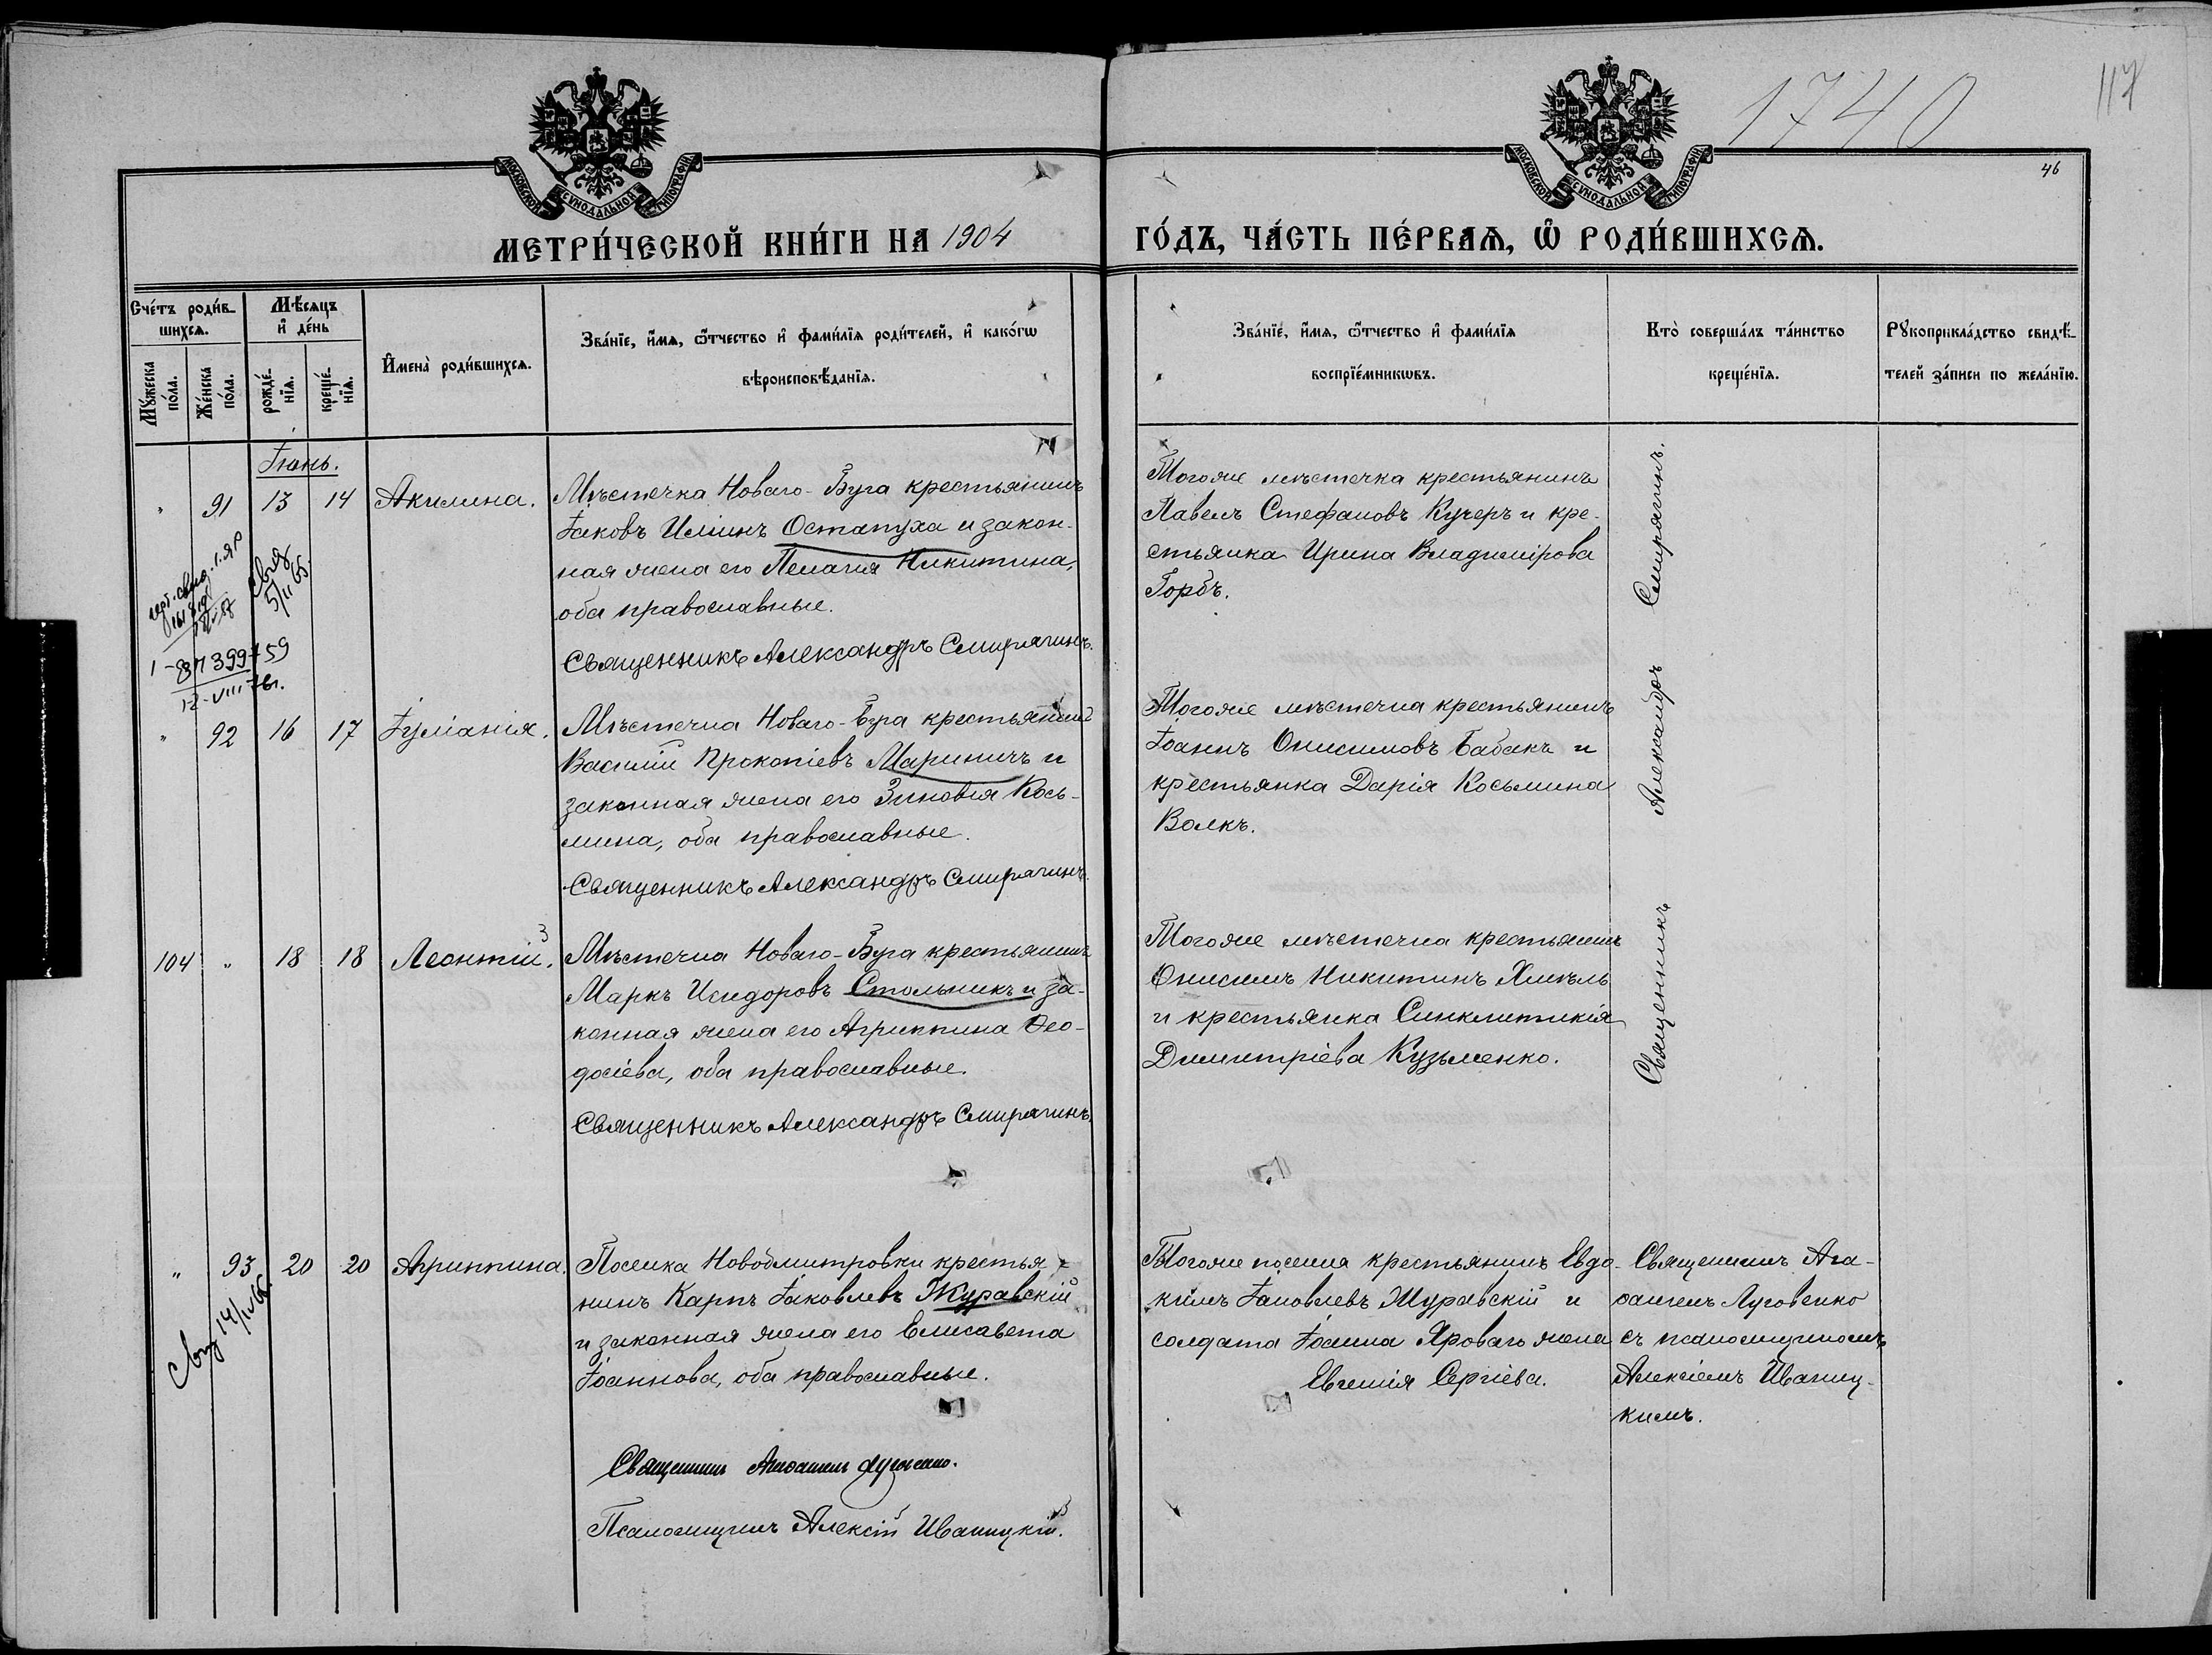 1740
117
46
МОСКОВСКОЙ СѴНОДАЛЬНОЙ ТИПОГРАФІИ
МОСКОВСКОЙ СѴНОДАЛЬНОЙ ТИПОГРАФІИ
МЕТРИ́ЧЕСКОЙ КНИ́ГИ НА 1904
ГО́ДЪ, ЧА́СТЬ ПЕ́РВАѦ, Ѡ҆ РОДИ́ВШИХСѦ.
Сче́тъ роди́в-
шихсѧ.
Мꙋ́жеска по́ла.
Же́нска по́ла.
Мѣ́сѧцъ
и҆ де́нь
рожде́-
нїѧ.
креще́-
нїѧ.
И҆мена̀ роди́вшихсѧ.
Зва́нїе, и҆́мѧ, ѻ҆́тчество и҆ фами́лїѧ роди́телей, и҆ како́гѡ
вѣроисповѣ́данїѧ.
Зва́нїе, и҆́мѧ, ѻ҆́тчество и҆ фами́лїѧ
воспрїе́мникѡвъ.
Кто̀ соверша́лъ та́инство
креще́нїѧ.
Рꙋкоприкла́дство свидѣ́-
телей за́писи по жела́нїю.
Іюнь.
" 91 13 14 Акилина.
Мѣстечка Новаго-Буга крестьянинъ
Іаковъ Иліинъ Остапуха и закон-
ная жена его Пелагія Никитина,
оба православные.
Священникъ Александръ Смирягинъ.
Тогоже мѣстечка крестьянинъ
Павелъ Стефановъ Кучеръ и кре-
стьянка Ирина Владимірова
Горбъ.
5/II 65.
12-VIII
" 92 16 17 Іуліанія.
Мѣстечка Новаго-Буга крестьянинъ
Василій Прокопіевъ Мариничъ и
законная жена его Зиновія Кось-
мина, оба православные.
Священникъ Александръ Смирягинъ.
Тогоже мѣстечка крестьянинъ
Іоаннъ Онисимовъ Бабакъ и
крестьянка Дарія Косьмина
Волкъ.
104 " 18 18 Леонтій.
Мѣстечка Новаго-Буга крестьянинъ
Маркъ Исидоровъ Стольникъ и за-
конная жена его Агриппина Ѳео-
досіева, оба православные.
Священникъ Александръ Смирягинъ.
Тогоже мѣстечка крестьянинъ
Онисимъ Никитинъ Хмѣль
и крестьянка Синклитикія
Димитріева Кузьменко.
Священникъ Александръ Смирягинъ.
" 93 20 20 Агриппина.
Поселка Новодмитровки крестья-
нинъ Карпъ Іаковлевъ Журавскій
и законная жена его Елисавета
Іоаннова, оба православные.
Священникъ
Псаломщикъ Алексій Иваницкій.
Тогоже поселка крестьянинъ Евдо-
кимъ Іаковлевъ Журавскій и
солдата Іоанна Яроваго жена
Евгенія Сергіева.
Священникъ Ага-
ѳангелъ Луговенко
съ псаломщикомъ
Алексіемъ Иваниц-
кимъ.